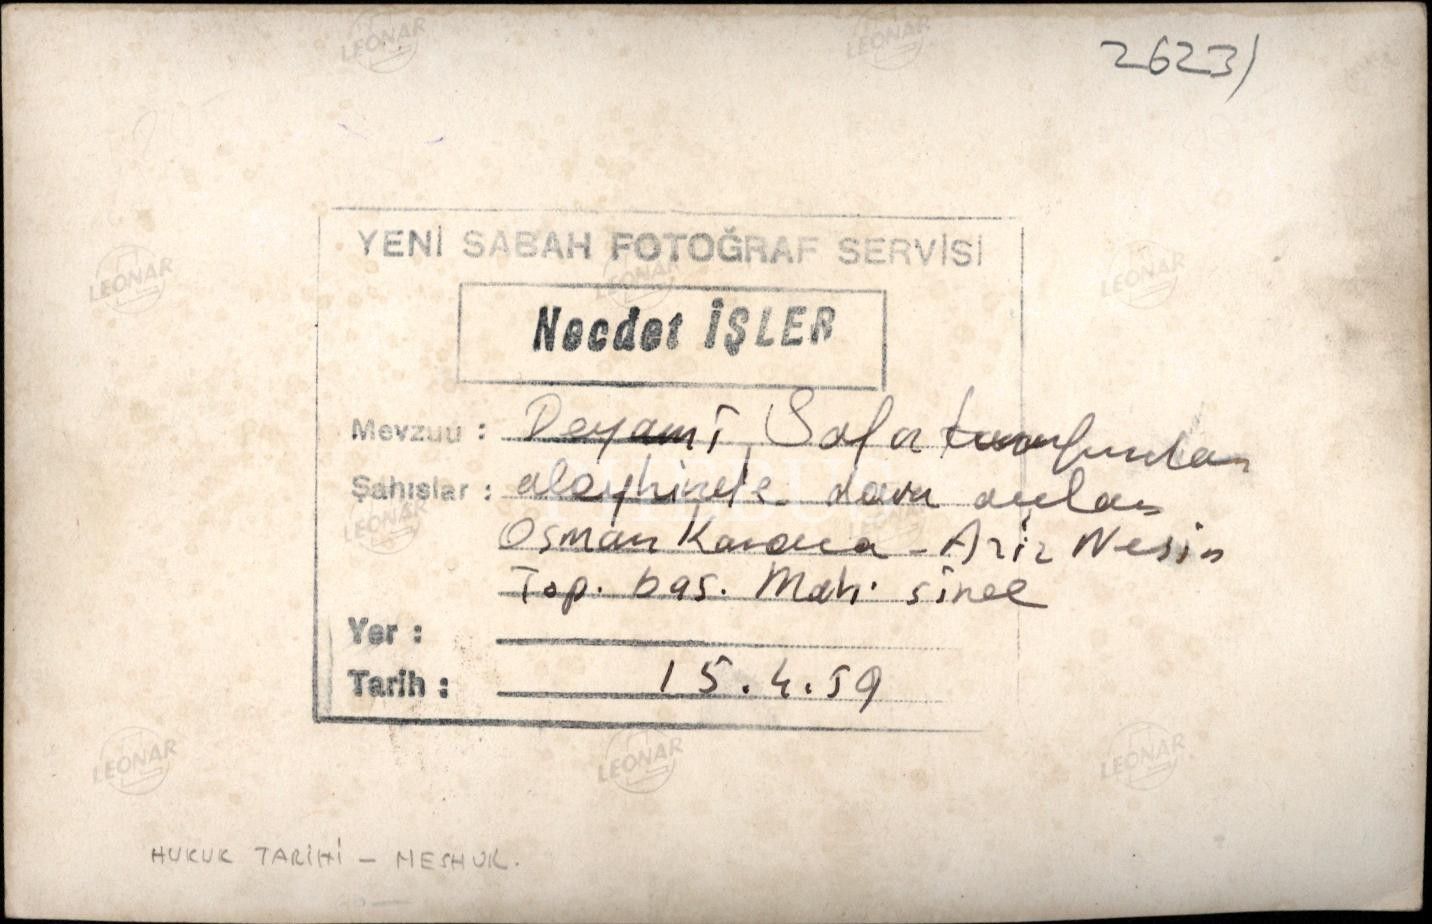 2623)
YENİ SABAH FOTOĞRAF SERVİSİ
Necdet İŞLER
Mevzuu : Peyami Safa tarafından
Şahıslar : aleyhinde dava açılan
Osman Karaca - Aziz Nesin
Top. bas. Mah.
Yer :
Tarih : 15.4.59
HUKUK TARİHİ - MESHUR.
LEONAR
LEONAR
LEONAR
LEONAR
LEONAR
LEONAR
LEONAR
LEONAR
LEONAR
LEONAR